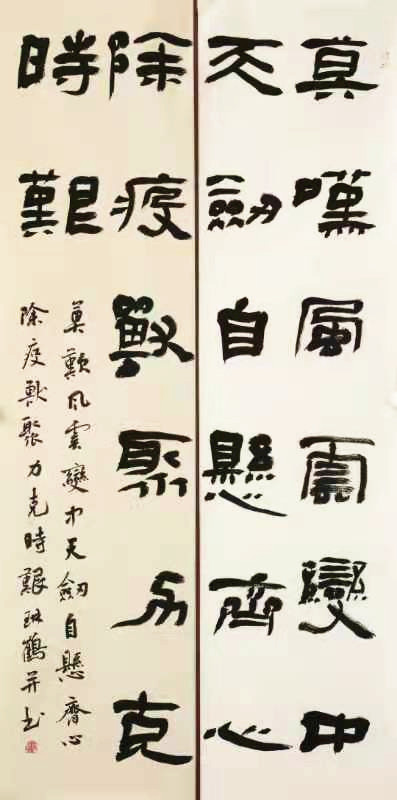 莫嘆風雲變中
天劔自懸齊心
除疫獸聚力克
時艱
莫歎风雲變中天劔自懸齊心
除疫獸聚力克時艱琳鶴并书